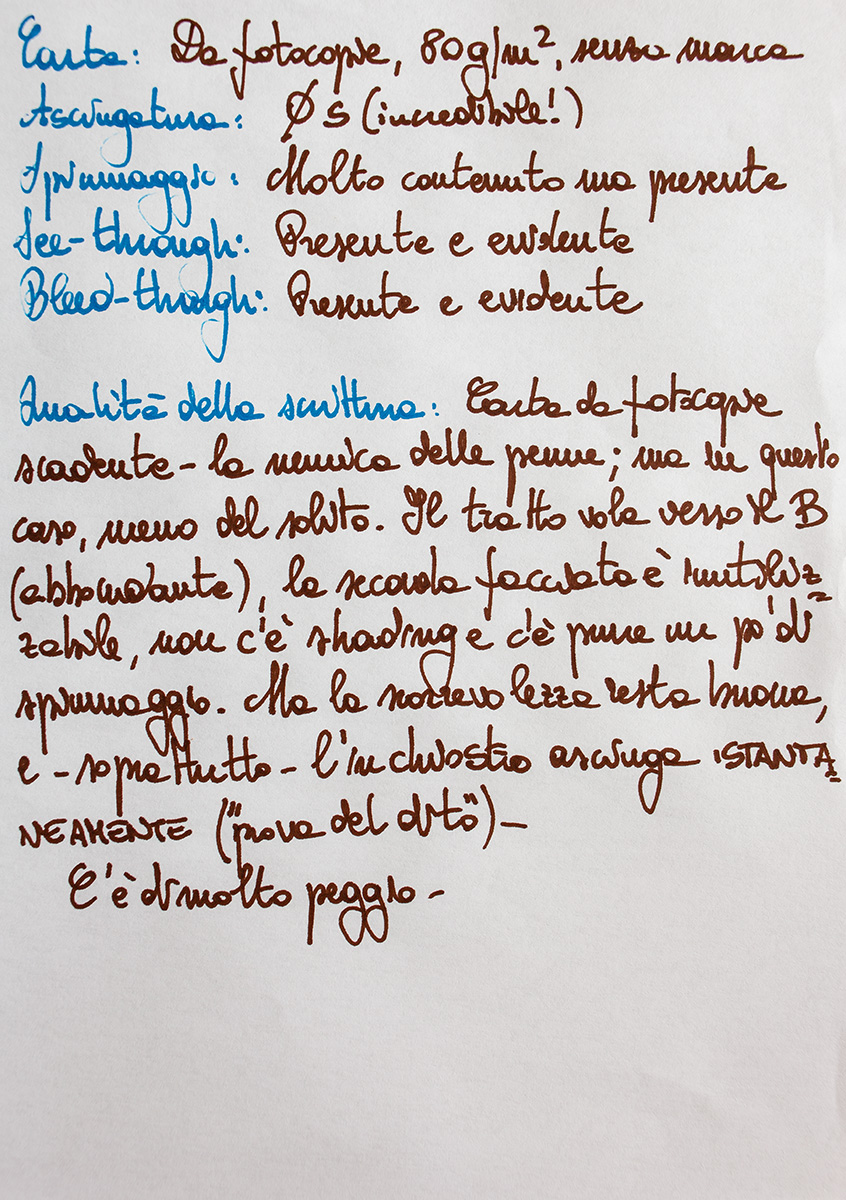 Carta: Da fotocopie, 80g/m², senza marca
Asciugatura: Ø s (incredibile!)
Spiumaggio: Molto contenuto ma presente
See-through: Presente e evidente
Bleed-through: Presente e evidente
Qualità della scrittura: Carta da fotocopie
scadente - la nemica delle penne; ma in questo
caso, meno del solito. Il tratto vola verso il B
(abbondante), la seconda facciata è inutiliz=
zabile, non c'è shading e c'è pure un po' di
spiumaggio. Ma la scorrevolezza resta buona,
e - soprattutto - l'inchiostro asciuga ISTANTA=
NEAMENTE ("prova del dito") -
C'è di molto peggio -